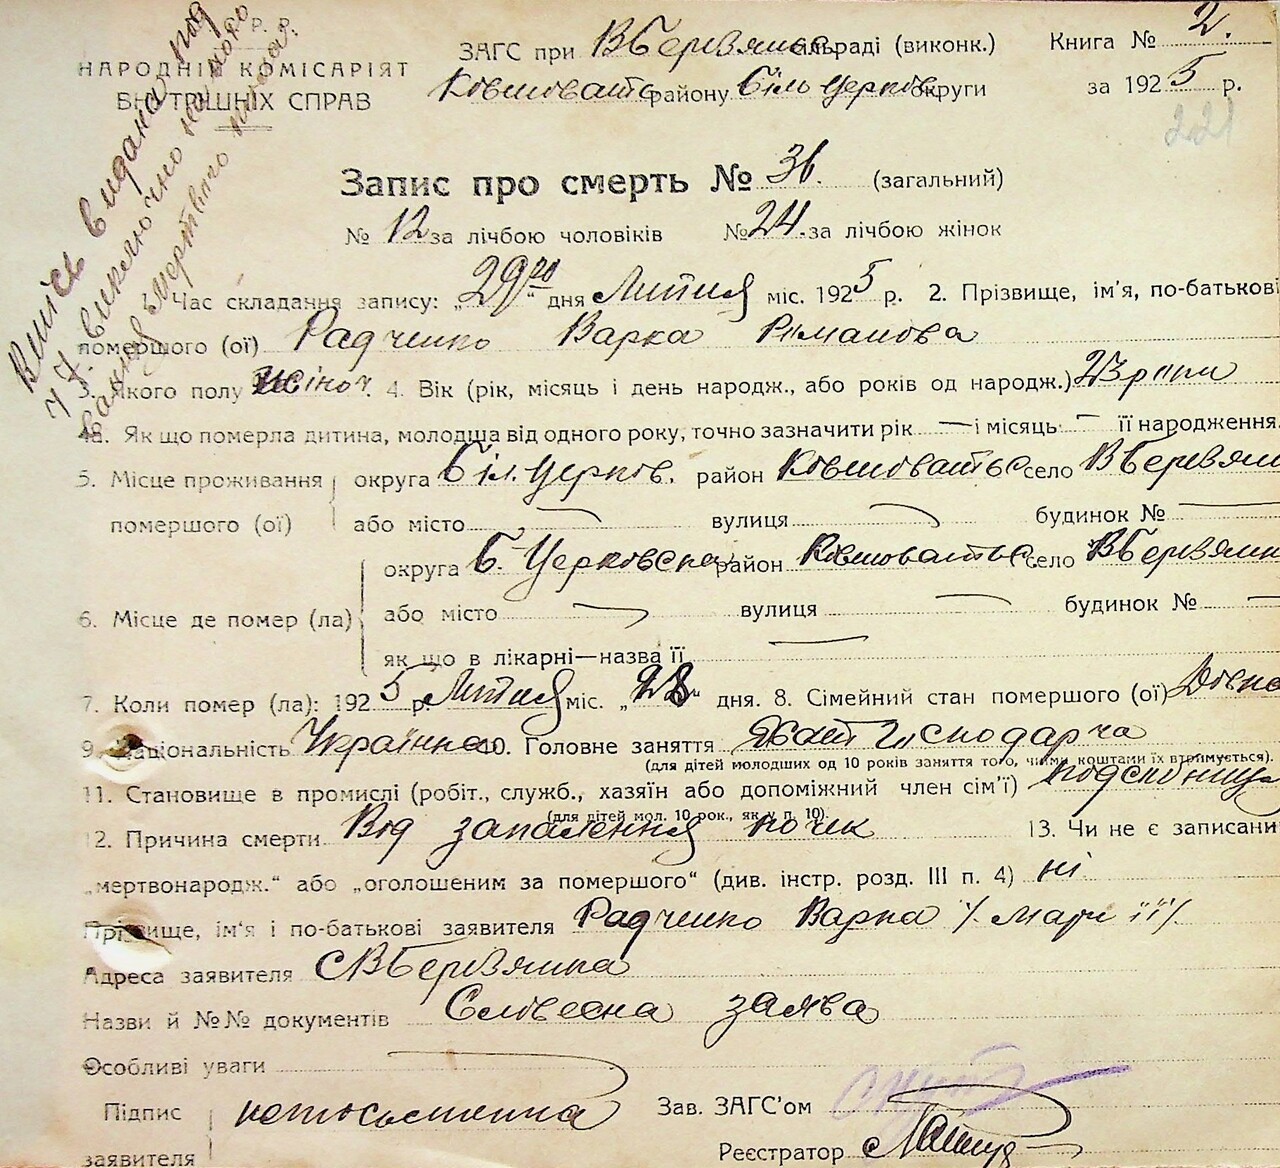 Р. Р.
НАРОДНІЙ КОМІСАРІЯТ
ВНУТРІШНІХ СПРАВ
Випісь видана під
ч 7. виключно на
ЗАГС при ВБерезянс. сільраді (виконк.)
Книга № 2.
Ковшоватс. району Біль Церков. округи
за 1925 р.
221
Запис про смерть № 36. (загальний)
№ 12 за лічбою чоловіків № 24. за лічбою жінок
Час складання запису: „29го“ дня Липня міс. 1925 р. 2. Прізвище, ім'я, по-батькові
помершого (ої) Радченко Варка Романова
3. Якого полу жіноч. 4. Вік (рік, місяць і день народж., або років од народж.) 23 роки
4а. Як що померла дитина, молодша від одного року, точно зазначити рік — і місяць — її народження.
5. Місце проживання помершого (ої) округа Біл. Церків. район Ковшоватс село ВБерезян
або місто — вулиця — будинок № —
6. Місце де помер (ла) округа Б-Церковська район Ковшоватс. село ВБерезянк
або місто — вулиця — будинок № —
як що в лікарні—назва її —
7. Коли помер (ла): 1925 р. Липня міс. „28“ дня. 8. Сімейний стан помершого (ої) Дівка
9. Національність Українка 10. Головне заняття Хатн Господарча
(для дітей молодших од 10 років заняття того, чиїми коштами їх втримується).
11. Становище в промислі (робіт., служб., хазяїн або допоміжний член сім'ї)
(для дітей мол. 10 рок., як у п. 10).
12. Причина смерти Від запалення почек 13. Чи не є записани
„мертвонародж.“ або „оголошеним за помершого“ (див. інстр. розд. III п. 4) ні
Прізвище, ім'я і по-батькові заявителя Радченко Варка / мати її /
Адреса заявителя с ВБерезянка
Назви й №№ документів Словесна заява
Особливі уваги —
Підпис заявителя неписьменна
Зав. ЗАГС'ом
Реєстратор